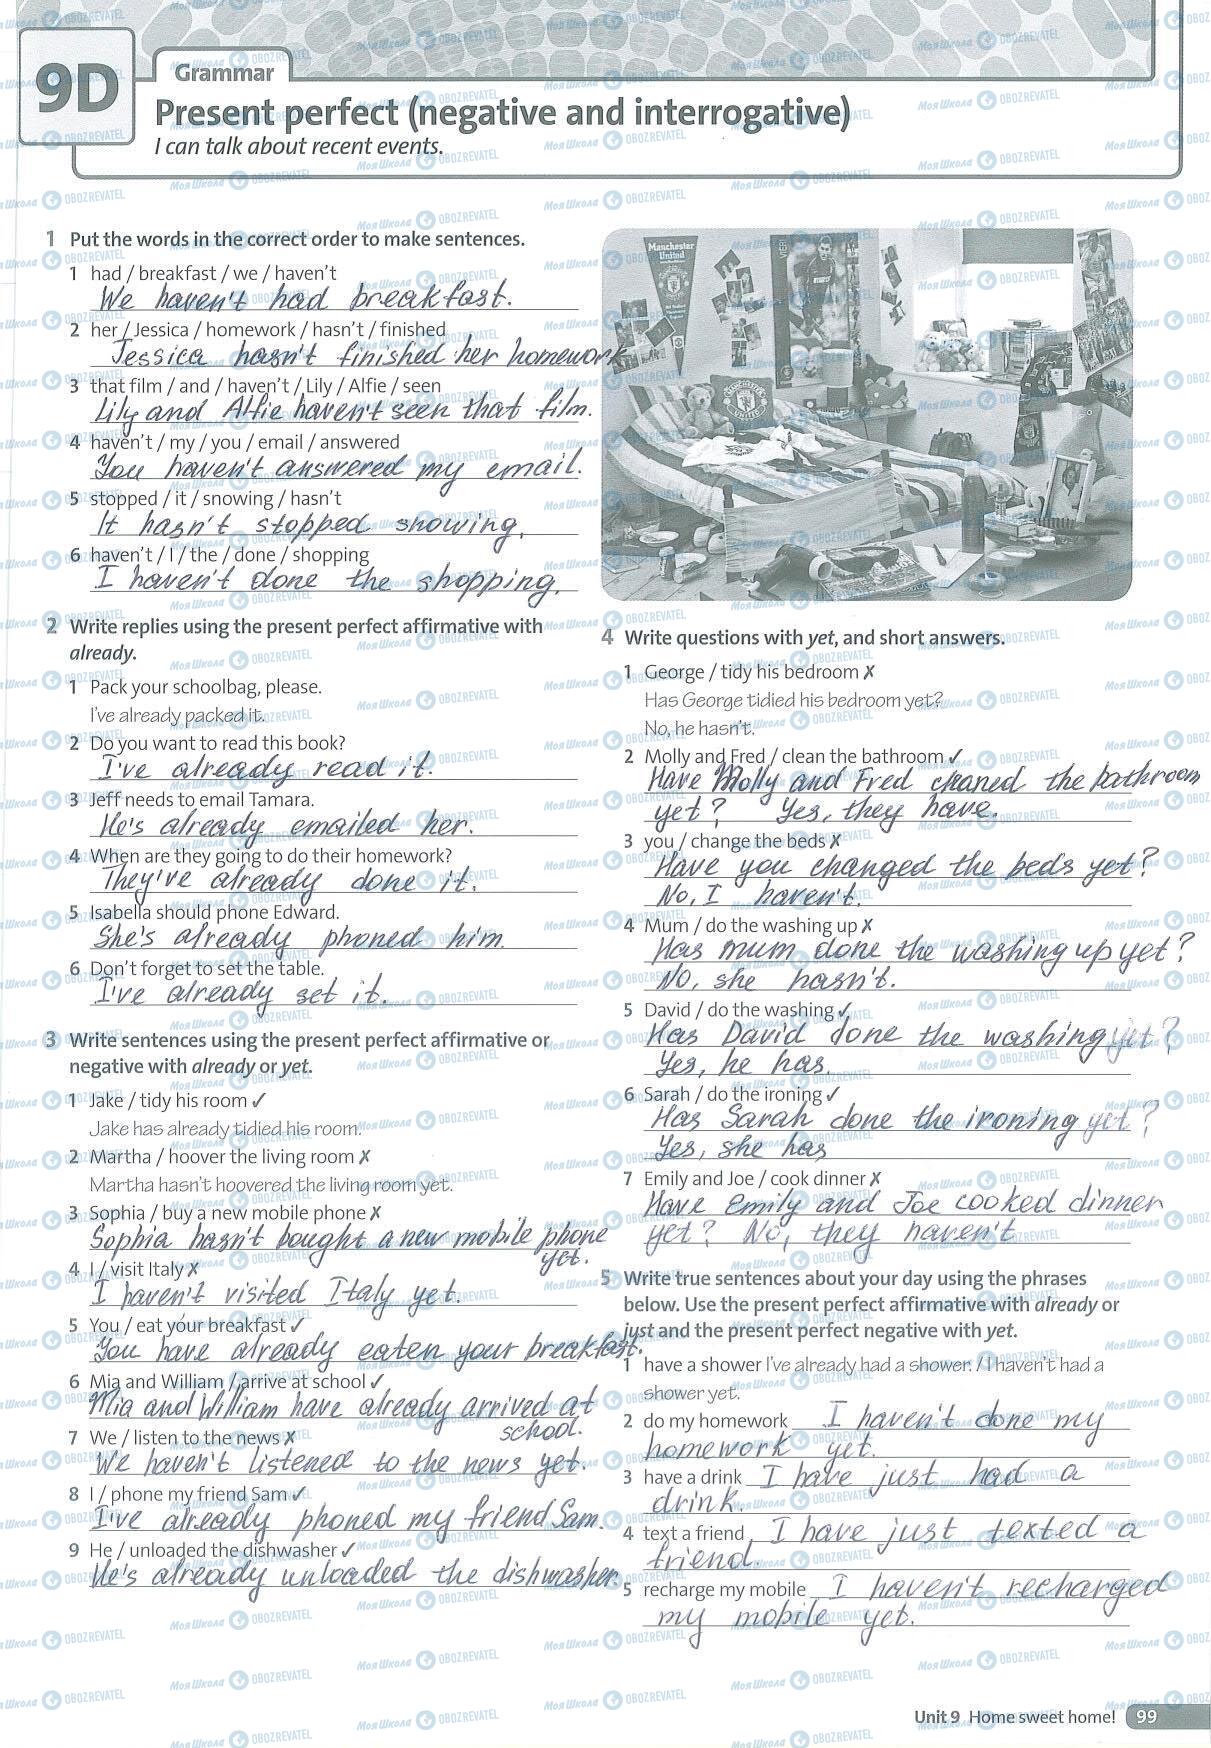 9D
Grammar
Present perfect (negative and interrogative)
I can talk about recent events.
1 Put the words in the correct order to make sentences.
1 had / breakfast / we / haven't
We haven't had breakfast.
2 her / Jessica / homework / hasn't / finished
Jessica hasn't finished her homework
3 that film / and / haven't / Lily / Alfie / seen
Lily and Alfie haven't seen that film.
4 haven't / my / you / email / answered
You haven't answered my email.
5 stopped / it / snowing / hasn't
It hasn't stopped snowing.
6 haven't / I / the / done / shopping
I haven't done the shopping.
2 Write replies using the present perfect affirmative with
already.
1 Pack your schoolbag, please.
I've already packed it.
2 Do you want to read this book?
I've already read it.
3 Jeff needs to email Tamara.
He's already emailed her.
4 When are they going to do their homework?
They've already done it.
5 Isabella should phone Edward.
She's already phoned him.
6 Don't forget to set the table.
I've already set it.
3 Write sentences using the present perfect affirmative or
negative with already or yet.
1 Jake / tidy his room ✓
Jake has already tidied his room.
2 Martha / hoover the living room ✗
Martha hasn't hoovered the living room yet.
3 Sophia / buy a new mobile phone ✗
Sophia hasn't bought a new mobile phone
yet.
4 I / visit Italy ✗
I haven't visited Italy yet.
5 You / eat your breakfast ✓
You have already eaten your breakfast.
6 Mia and William / arrive at school ✓
Mia and William have already arrived at
school.
7 We / listen to the news ✗
We haven't listened to the news yet.
8 I / phone my friend Sam ✓
I've already phoned my friend Sam.
9 He / unloaded the dishwasher ✓
He's already unloaded the dishwasher.
Manchester
United
4 Write questions with yet, and short answers.
1 George / tidy his bedroom ✗
Has George tidied his bedroom yet?
No, he hasn't.
2 Molly and Fred / clean the bathroom ✓
Have Molly and Fred cleaned the bathroom
yet? Yes, they have.
3 you / change the beds ✗
Have you changed the beds yet?
No, I haven't.
4 Mum / do the washing up ✗
Has mum done the washing up yet?
No, she hasn't.
5 David / do the washing ✓
Has David done the washing yet?
Yes, he has.
6 Sarah / do the ironing ✓
Has Sarah done the ironing yet?
Yes, she has
7 Emily and Joe / cook dinner ✗
Have Emily and Joe cooked dinner
yet? No, they haven't
5 Write true sentences about your day using the phrases
below. Use the present perfect affirmative with already or
just and the present perfect negative with yet.
1 have a shower I've already had a shower. / I haven't had a
shower yet.
2 do my homework I haven't done my
homework yet.
3 have a drink I have just had a
drink.
4 text a friend I have just texted a
friend.
5 recharge my mobile I haven't recharged
my mobile yet.
Unit 9 Home sweet home! 99
Моя Школа OBOZREVATEL